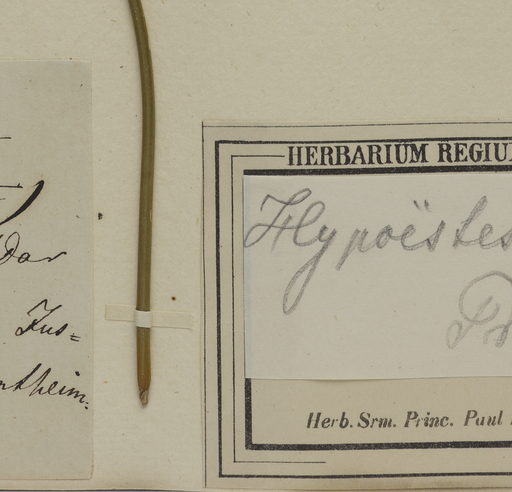 Dar
Jus=
ntheim.
HERBARIUM REGIU
Hypoëstes
Herb. Srm. Princ. Paul